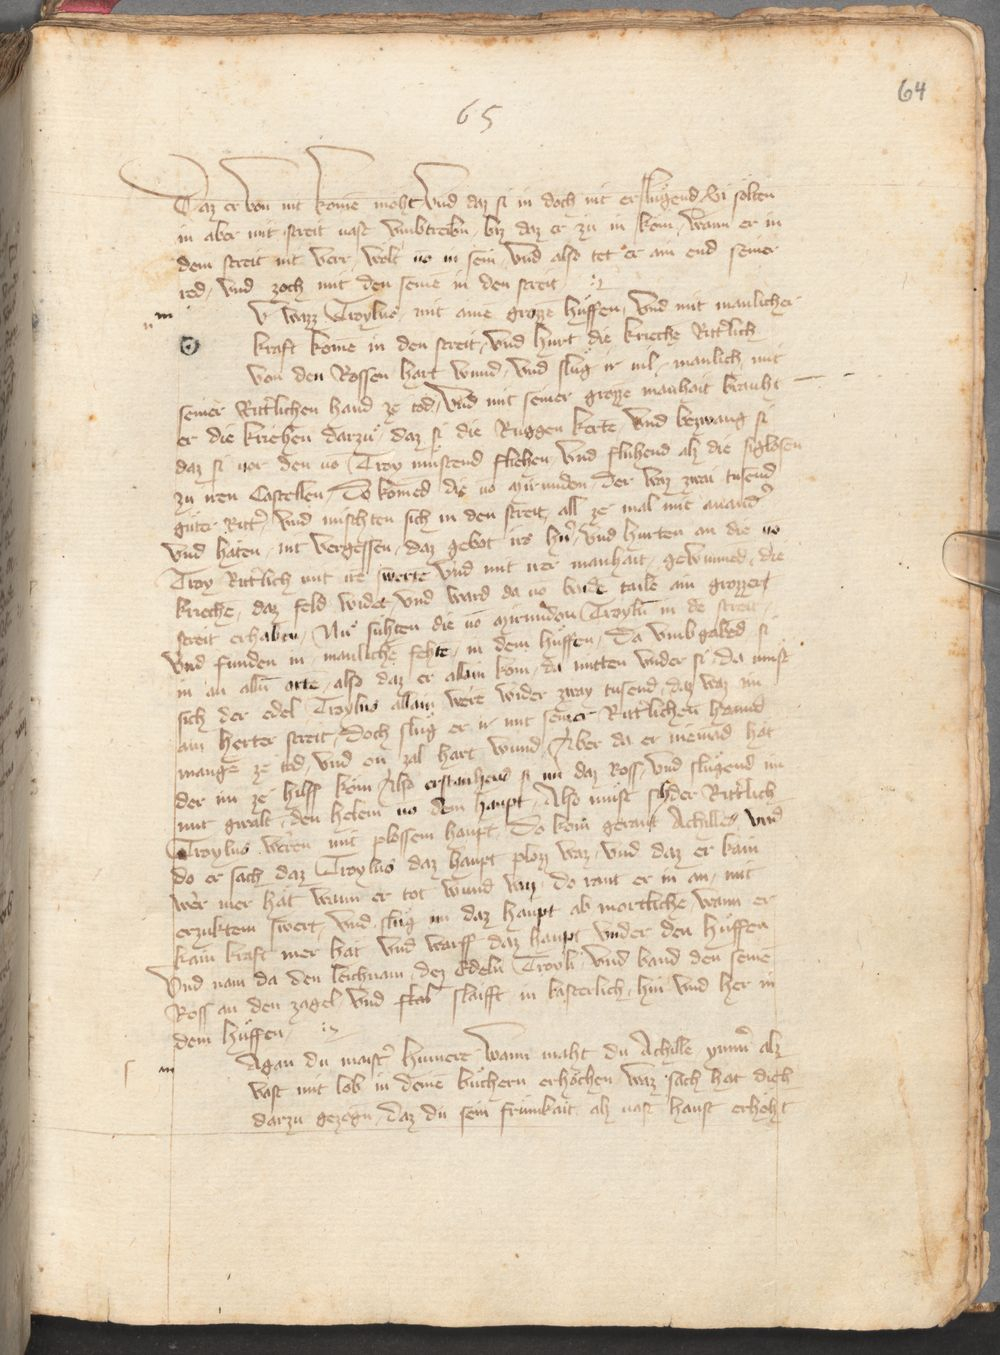 64
65
Daz er von nit komē moht Vnd daz si in doch nit erslugend Si solten
in aber mit streit vast Vmbtreibn biz daz er zu in kem Wann er in
dem streit nit verr wolt vō in sein Vnd also tet er ain end seiner
red Vnd zoch mit den seinē in den streit
V wazz Troylus mit aine grozzē huffen Vnd mit manlicher
kraft komē in den streit Vnd hurt die krieche Rittlich
Von den Rossen hart wund Vnd slug ir vil manlich mit
seiner Rittlichen hand ze tod Vnd mit seiner grozze manhait braucht
er die kriehen darzu daz si die Ruggen kerte Vnd bezwang si
daz si vor den vō Troy mustend fliehen Vnd fluhend alz die siglosen
zu iren Castellen Do komēd die vō mirmidon der waz zwai tusend
guter Ritt Vnd mischten sich in den streit all ze mal mit anand
Vnd haten nit vergessen daz gebot irs hn Vnd hurten an die vō
Troy Rittlich mit irē swerte Vnd mit irer manhait gewunned die
krieche daz feld wider Vnd ward da vō baide taile ain grozzer
streit erhabtn Nu suhten die vō mirmidon Troylū in de streit
Vnd funden in manliche fehte in dem huffen Da vmbgabed si
in an alln orte also daz er allain kom da mitten vnder si da must
sich der edel Troylus allain were wider zway tusend daz waz im
ain herter streit Doch slug er ir mit seiner Rittlichen hannd
mangē ze tod Vnd en zal hart wund Aber da er niemād hat
der im ze hilff kom Also erstachend si im daz Ross Vnd slugend im
mit gwalt den helem vō dem haupt Also must sich der Rittlich
Troylus weren mit plossem haupt Do kom gerant Achilles Vnd
do er sach daz Troylus daz haupt plozz waz Vnd daz er kain
wer mer hat wann er tot wund waz do rant er in an mit
erzuktem swert Vnd slug im daz haupt ab mortliche wann er
kain kraft mer hat Vnd warff daz haupt vnder den huffen
Vnd nam da den leichnam dez Edeln Troyli Vnd band den seinē
Ross an den zagel Vnd slaifft in lasterlich hin Vnd her in
dem huffen
Agan du maist Humere Wann maht du Achille ymm alz
vast mit lob in deinē buchern erhochen waz sach hat dich
darzu gezogn daz du sein frumkait alz vast hanst erhoht